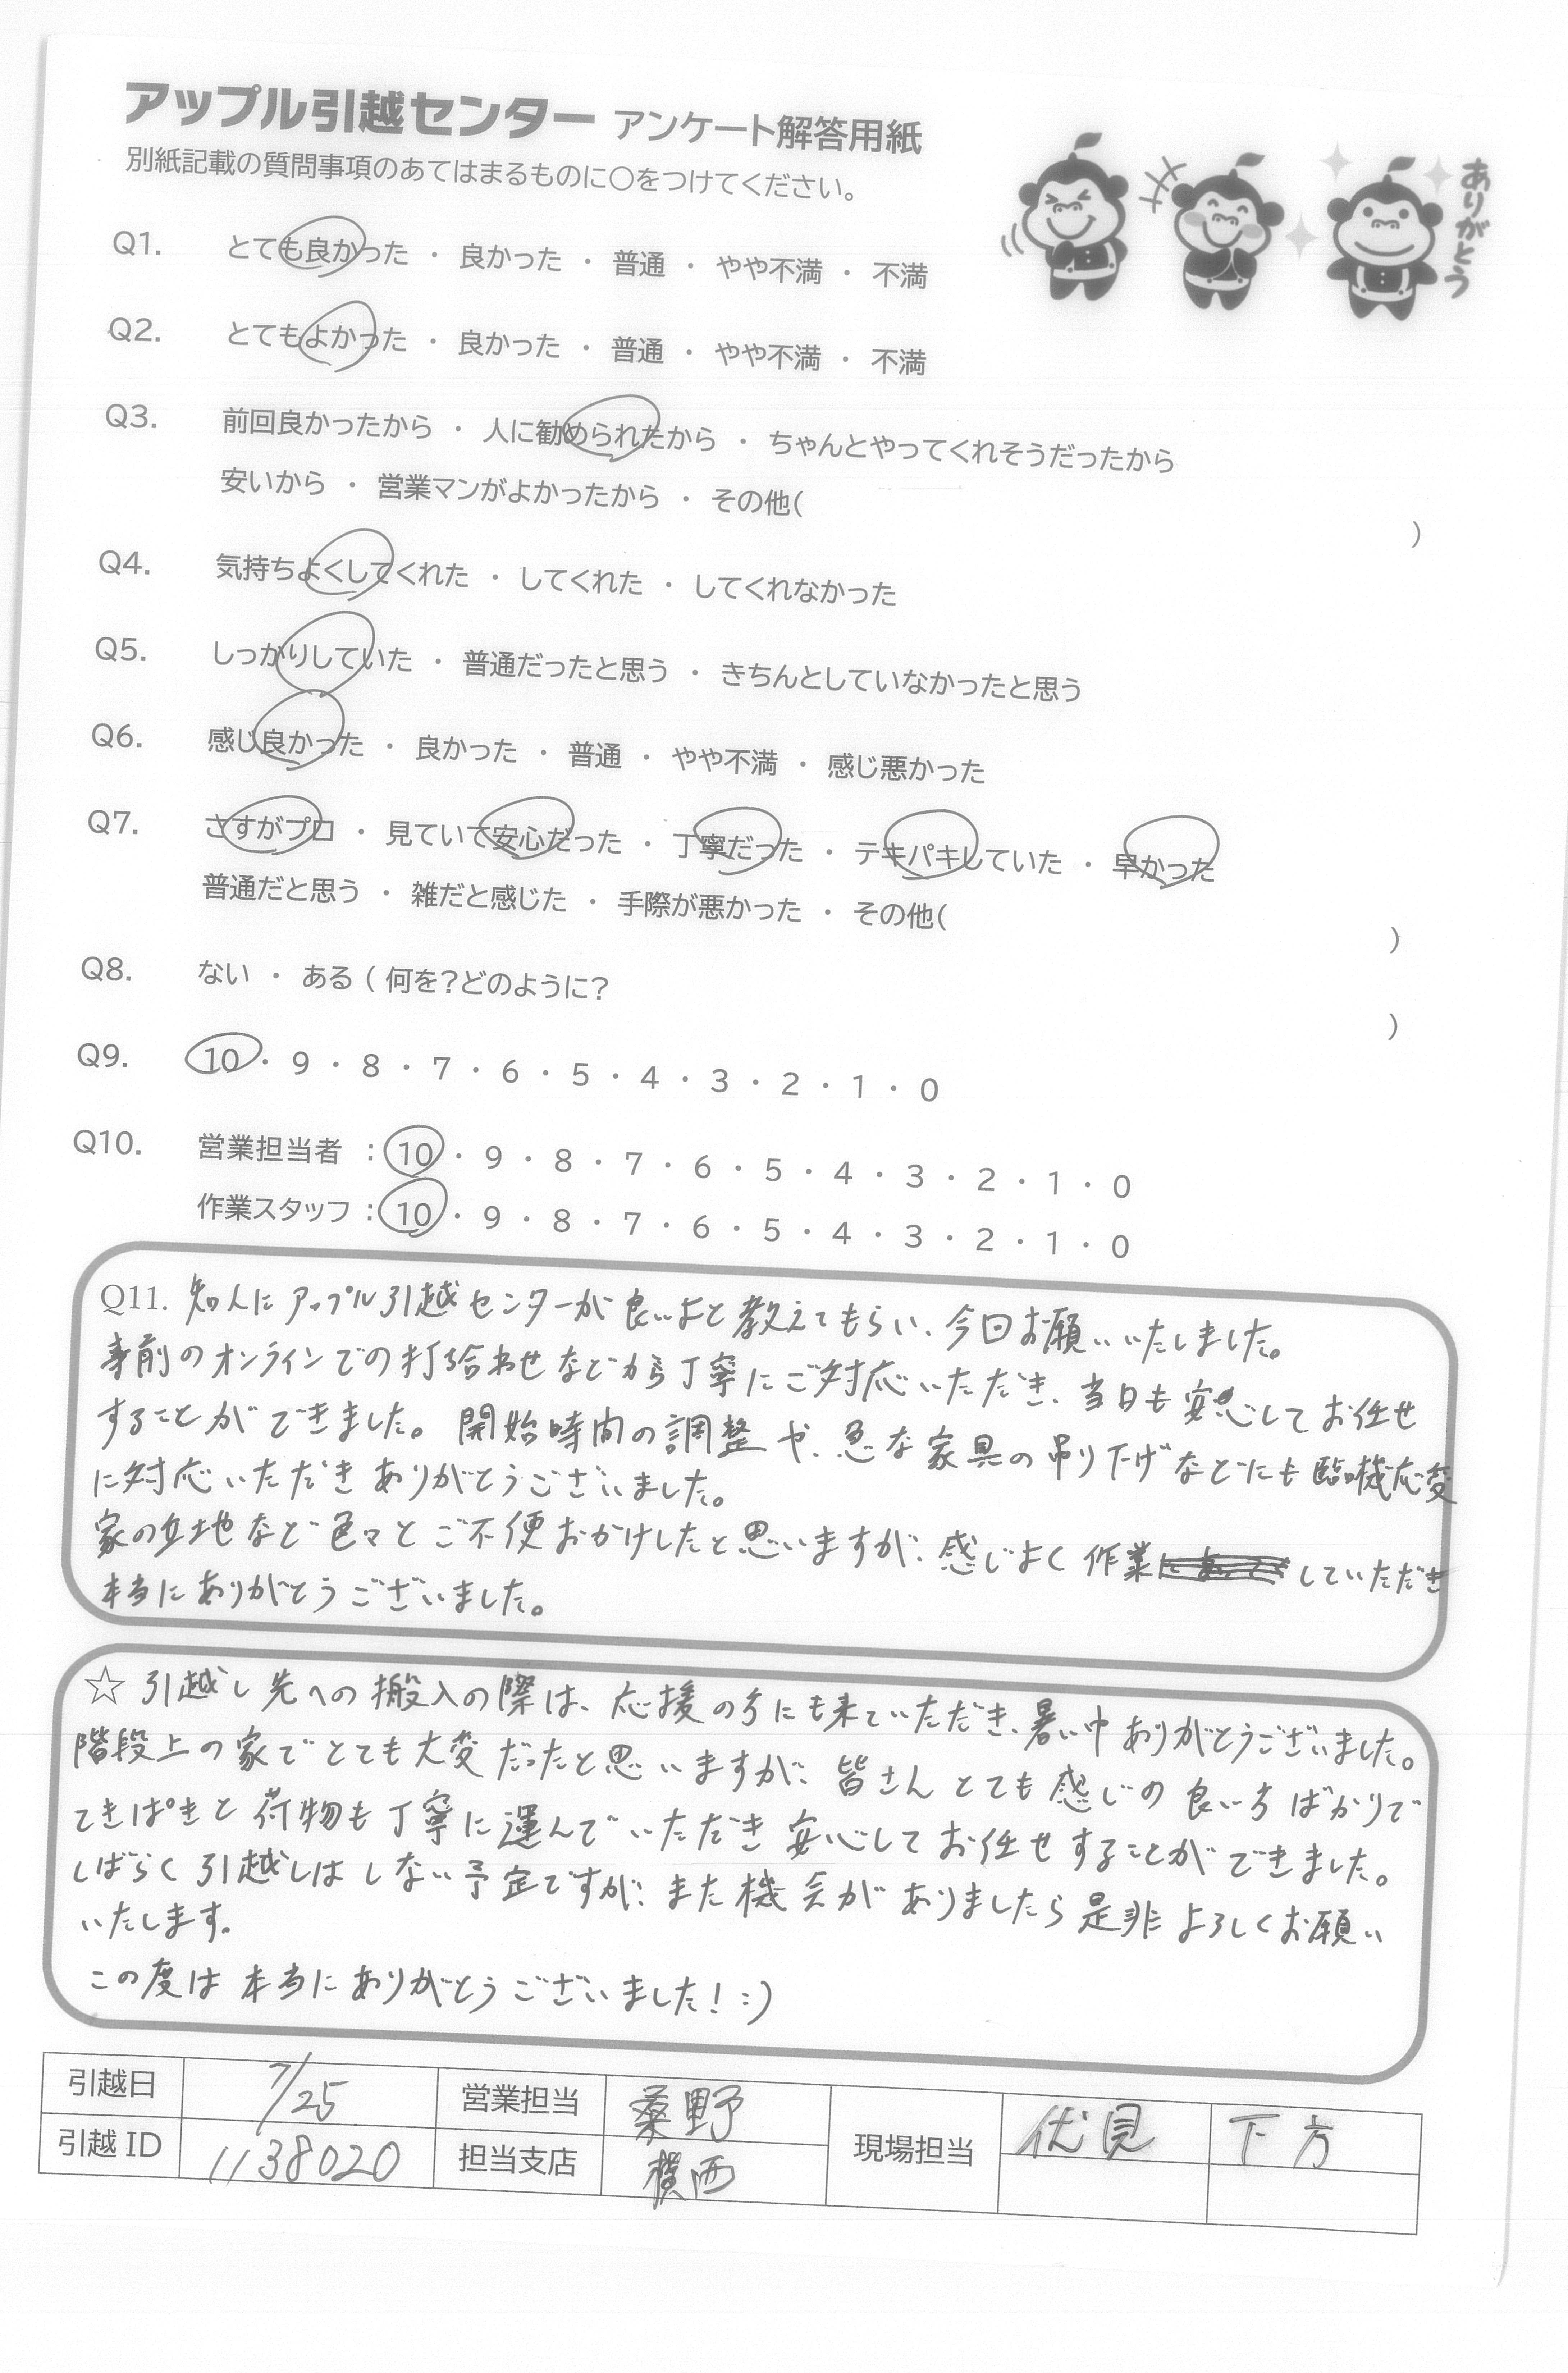 アップル引越センター アンケート解答用紙
別紙記載の質問事項のあてはまるものに○をつけてください。
ありがとう
Q1. とても良かった ・ 良かった ・ 普通 ・ やや不満 ・ 不満
Q2. とてもよかった ・ 良かった ・ 普通 ・ やや不満 ・ 不満
Q3. 前回良かったから ・ 人に勧められたから ・ ちゃんとやってくれそうだったから
安いから ・ 営業マンがよかったから ・ その他( )
Q4. 気持ちよくしてくれた ・ してくれた ・ してくれなかった
Q5. しっかりしていた ・ 普通だったと思う ・ きちんとしていなかったと思う
Q6. 感じ良かった ・ 良かった ・ 普通 ・ やや不満 ・ 感じ悪かった
Q7. さすがプロ ・ 見ていて安心だった ・ 丁寧だった ・ テキパキしていた ・ 早かった
普通だと思う ・ 雑だと感じた ・ 手際が悪かった ・ その他( )
Q8. ない ・ ある ( 何を?どのように? )
Q9. 10 ・ 9 ・ 8 ・ 7 ・ 6 ・ 5 ・ 4 ・ 3 ・ 2 ・ 1 ・ 0
Q10. 営業担当者 : 10 ・ 9 ・ 8 ・ 7 ・ 6 ・ 5 ・ 4 ・ 3 ・ 2 ・ 1 ・ 0
作業スタッフ : 10 ・ 9 ・ 8 ・ 7 ・ 6 ・ 5 ・ 4 ・ 3 ・ 2 ・ 1 ・ 0
Q11. 知人にアップル引越センターが良いよと教えてもらい、今回お願いいたしました。
事前のオンラインでの打合わせなどから丁寧にご対応いただき、当日も安心してお任せ
することができました。開始時間の調整や、急な家具の吊り下げなどにも臨機応変
に対応いただきありがとうございました。
家の立地など色々とご不便おかけしたと思いますが、感じよく作業していただき
本当にありがとうございました。
☆ 引越し先への搬入の際は、応援の方にも来ていただき、暑い中ありがとうございました。
階段上の家でとても大変だったと思いますが、皆さんとても感じの良い方ばかりで
てきぱきと荷物も丁寧に運んでいただき安心してお任せすることができました。
しばらく引越しはしない予定ですが、また機会がありましたら是非よろしくお願い
いたします。
この度は本当にありがとうございました! :)
引越日 7/25 営業担当 桑野 現場担当 伏見 下方
引越 ID 1138020 担当支店 横西